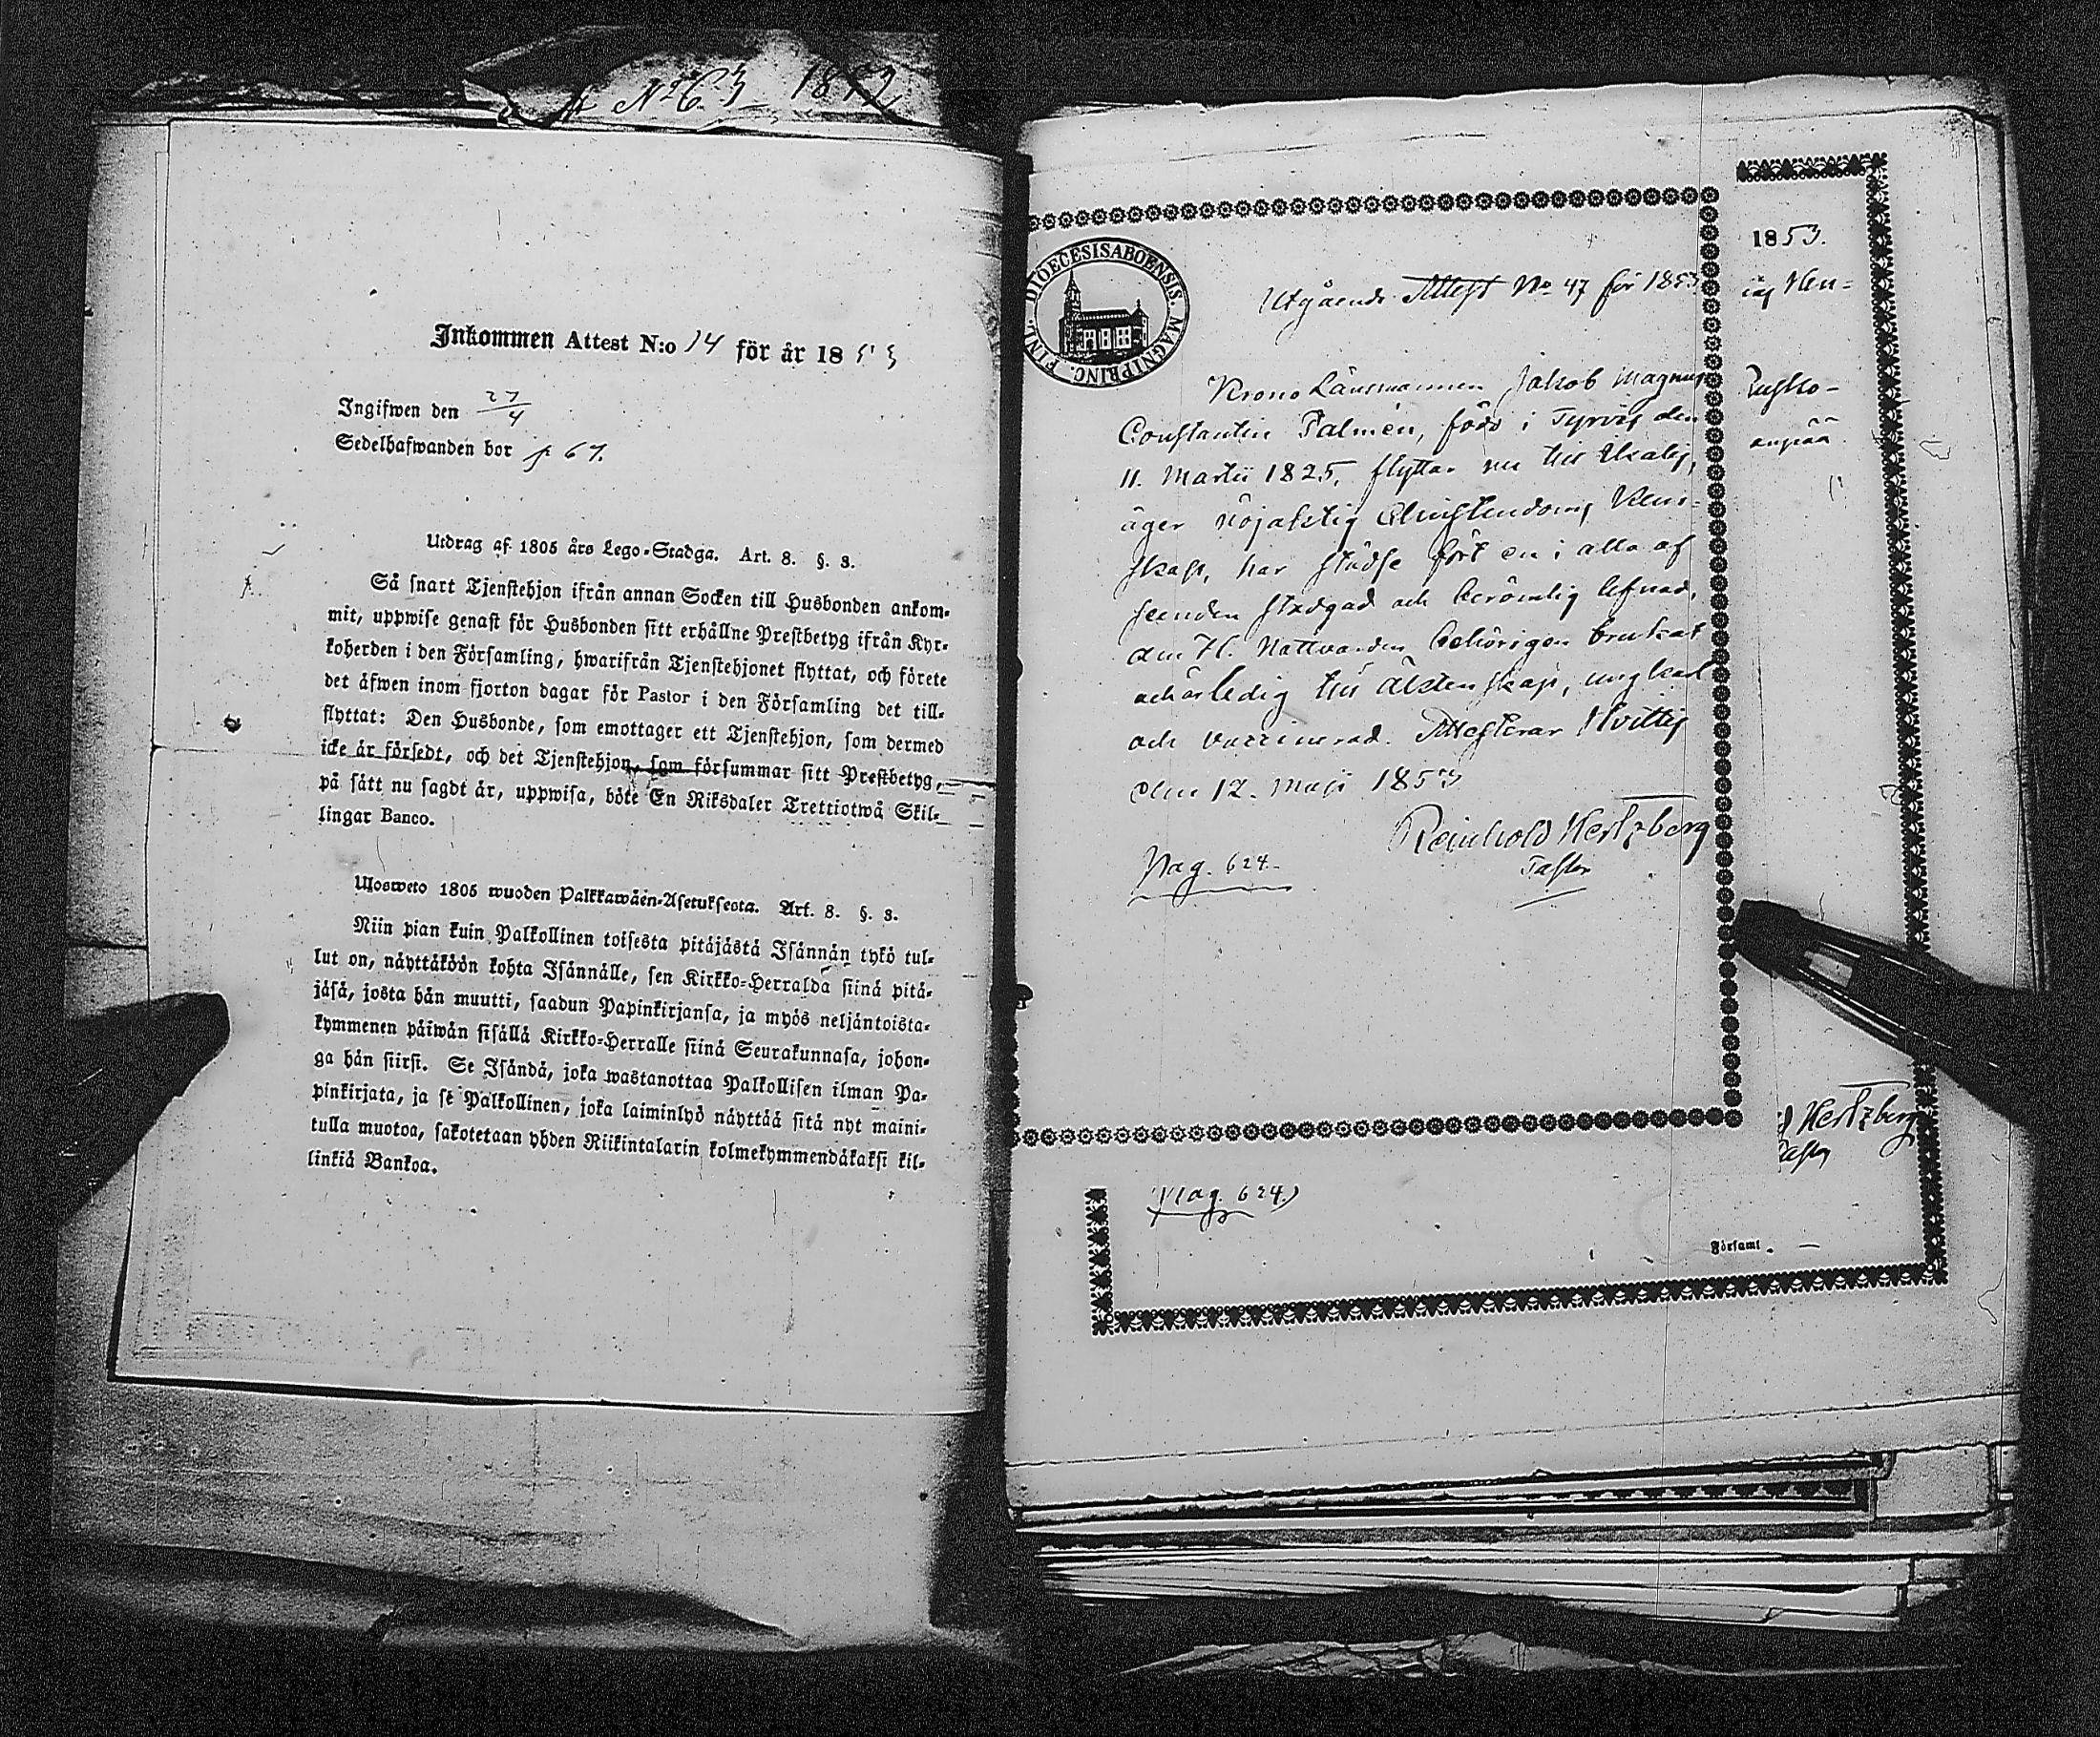 No 63 1853
Inkommen Attest N:o 14 för år 1853
Ingifwen den 27/4
Sedelhafwanden bor p 67.
Utdrag af 1805 års Lego-Stadga. Art. 8. §. 3.
Så snart Tjenstehjon ifrån annan Socken till Husbonden ankom-
mit, uppwise genast för Husbonden sitt erhållne Prestbetyg ifrån Kyr-
koherden i den Församling, hwarifrån Tjenstehjonet flyttat, och förete
det åfwen inom fjorton dagar för Pastor i den Församling det till-
flyttat: Den Husbonde, som emottager ett Tjenstehjon, som dermed
icke är försedt, och det Tjenstehjon, som försummar sitt Prestbetyg,
på sätt nu sagdt är, uppwisa, böte En Riksdaler Trettiotwå Skil-
lingar Banco.
Ulosweto 1805 wuoden Palkkawäen-Asetuksesta. Art. 8. §. 3.
Niin pian kuin Palkollinen toisesta pitäjästä Isännän tykö tul-
lut on, näyttäköön kohta Isännälle, sen Kirkko-Herralda siinä pitä-
jäsä, josta hän muutti, saadun Papinkirjansa, ja myös neljäntoista-
kymmenen päiwän sisällä Kirkko-Herralle siinä Seurakunnasa, johon-
ga hän siirsi. Se Isändä, joka wastanottaa Palkollisen ilman Pa-
pinkirjata, ja se Palkollinen, joka laiminlyö näyttää sitä nyt maini-
tulla muotoa, sakotetaan yhden Riikintalarin kolmekymmendäkaksi kil-
linkiä Bankoa.
DIOECESIS ABOENSIS. MAGNI PRINC. FINL.
Utgående Attest No 47 för 1853
Krono Länsmannen Jakob Magnus
Constantin Palmén, född i Tyrvis den
11. Martii 1825, flyttar nu till Ikalis,
äger nöjaktig Christendoms Kun-
skap, har städse fört en i alla af
seenden stadgad och berömlig lefnad,
den H. Nattvarden behörigen brukat
och är ledig till Äktenskap, ungkarl
och vaccinerad. Attesterar Hvittis
den 12. Maji 1853
Reinhold Hertzberg
Pastor
Pag. 624.
1853.
Hertzberg
Pag. 624.
Församl.